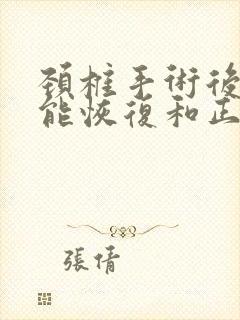 頚椎手術後
能恢復和正
張倩